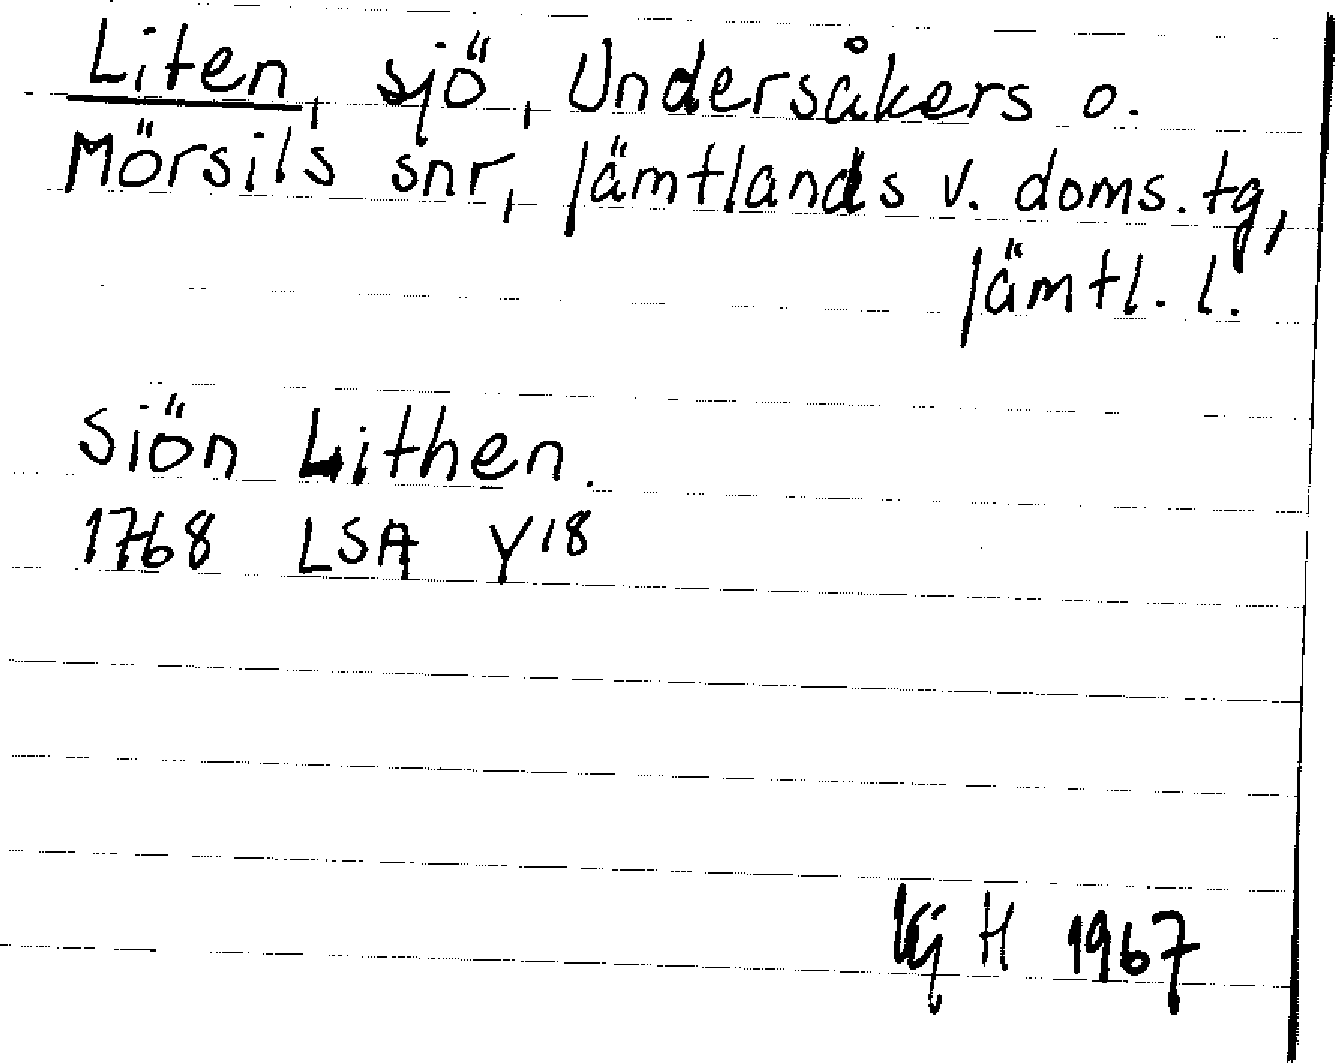 Liten, sjö, Undersåkers o.
Mörsils snr, Jämtlands v. doms. tg,
Jämtl. l.
Siön Lithen.
1768 LSA Y18
Kj H 1967